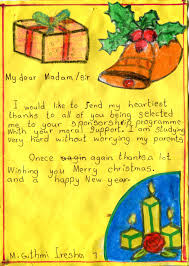 My dear Madam/Sir
I would like to send my heartiest
thanks to all of you being selected
me to your sponsorship programme
With your moral support. I am studying
very hard without worrying my parents
Onece again thanks a lot
Wishing you Merry christmas
and a happy New year
M. Guthmi Iresha